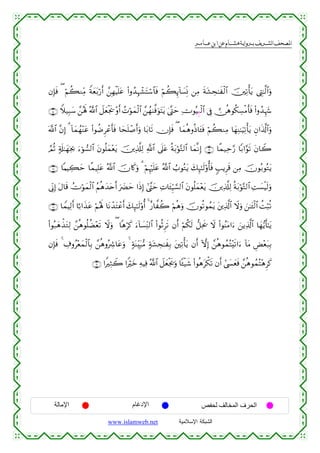 المصحف الشريف برواية هشام عن ابن عامر
وَٱلَّٰتِي يَأۡتِينَ ٱلۡفَٰحِشَةَ مِن نِّسَآئِكُمۡ فَٱسۡتَشۡهِدُواْ عَلَيۡهِنَّ أَرۡبَعَةٗ مِّنكُمۡۖ فَإِن
شَهِدُواْ فَأَمۡسِكُوهُنَّ فِي ٱلۡبِيُوتِ حَتَّىٰ يَتَوَفَّىٰهُنَّ ٱلۡمَوۡتُ أَوۡ يَجۡعَلَ ٱللَّهُ لَهُنَّ سَبِيلٗا
وَٱلَّذَانِ يَأۡتِيَٰنِهَا مِنكُمۡ فَـَٔاذُوهُمَاۖ فَإِن تَابَا وَأَصۡلَحَا فَأَعۡرِضُواْ عَنۡهُمَآۗ إِنَّ ٱللَّهَ
كَانَ تَوَّابٗا رَّحِيمًا إِنَّمَا ٱلتَّوۡبَةُ عَلَى ٱللَّهِ لِلَّذِينَ يَعۡمَلُونَ ٱلسُّوٓءَ بِجَهَٰلَةٖ ثُمَّ
يَتُوبُونَ مِن قَرِيبٖ فَأُوْلَٰٓئِكَ يَتُوبُ ٱللَّهُ عَلَيۡهِمۡۗ وَكَانَ ٱللَّهُ عَلِيمًا حَكِيمٗا
وَلَيۡسَتِ ٱلتَّوۡبَةُ لِلَّذِينَ يَعۡمَلُونَ ٱلسَّيِّـَٔاتِ حَتَّىٰٓ إِذَا حَضَرَ أَحَدَهُمُ ٱلۡمَوۡتُ قَالَ إِنِّي
تُبۡتُ ٱلۡـَٰٔنَ وَلَا ٱلَّذِينَ يَمُوتُونَ وَهُمۡ كُفَّارٌۚ أُوْلَٰٓئِكَ أَعۡتَدۡنَا لَهُمۡ عَذَابًا أَلِيمٗا
يَٰٓأَيُّهَا ٱلَّذِينَ ءَامَنُواْ لَا يَحِلُّ لَكُمۡ أَن تَرِثُواْ ٱلنِّسَآءَ كَرۡهٗاۖ وَلَا تَعۡضُلُوهُنَّ لِتَذۡهَبُواْ
بِبَعۡضِ مَآ ءَاتَيۡتُمُوهُنَّ إِلَّآ أَن يَأۡتِينَ بِفَٰحِشَةٖ مُّبَيِّنَةٖۚ وَعَاشِرُوهُنَّ بِٱلۡمَعۡرُوفِۚ فَإِن
كَرِهۡتُمُوهُنَّ فَعَسَىٰٓ أَن تَكۡرَهُواْ شَيۡـٔٗا وَيَجۡعَلَ ٱللَّهُ فِيهِ خَيۡرٗا كَثِيرٗا
الحرف المخالف لحفص الإدغام الإمالة
الشبكة الإسلامية www.islamweb.net